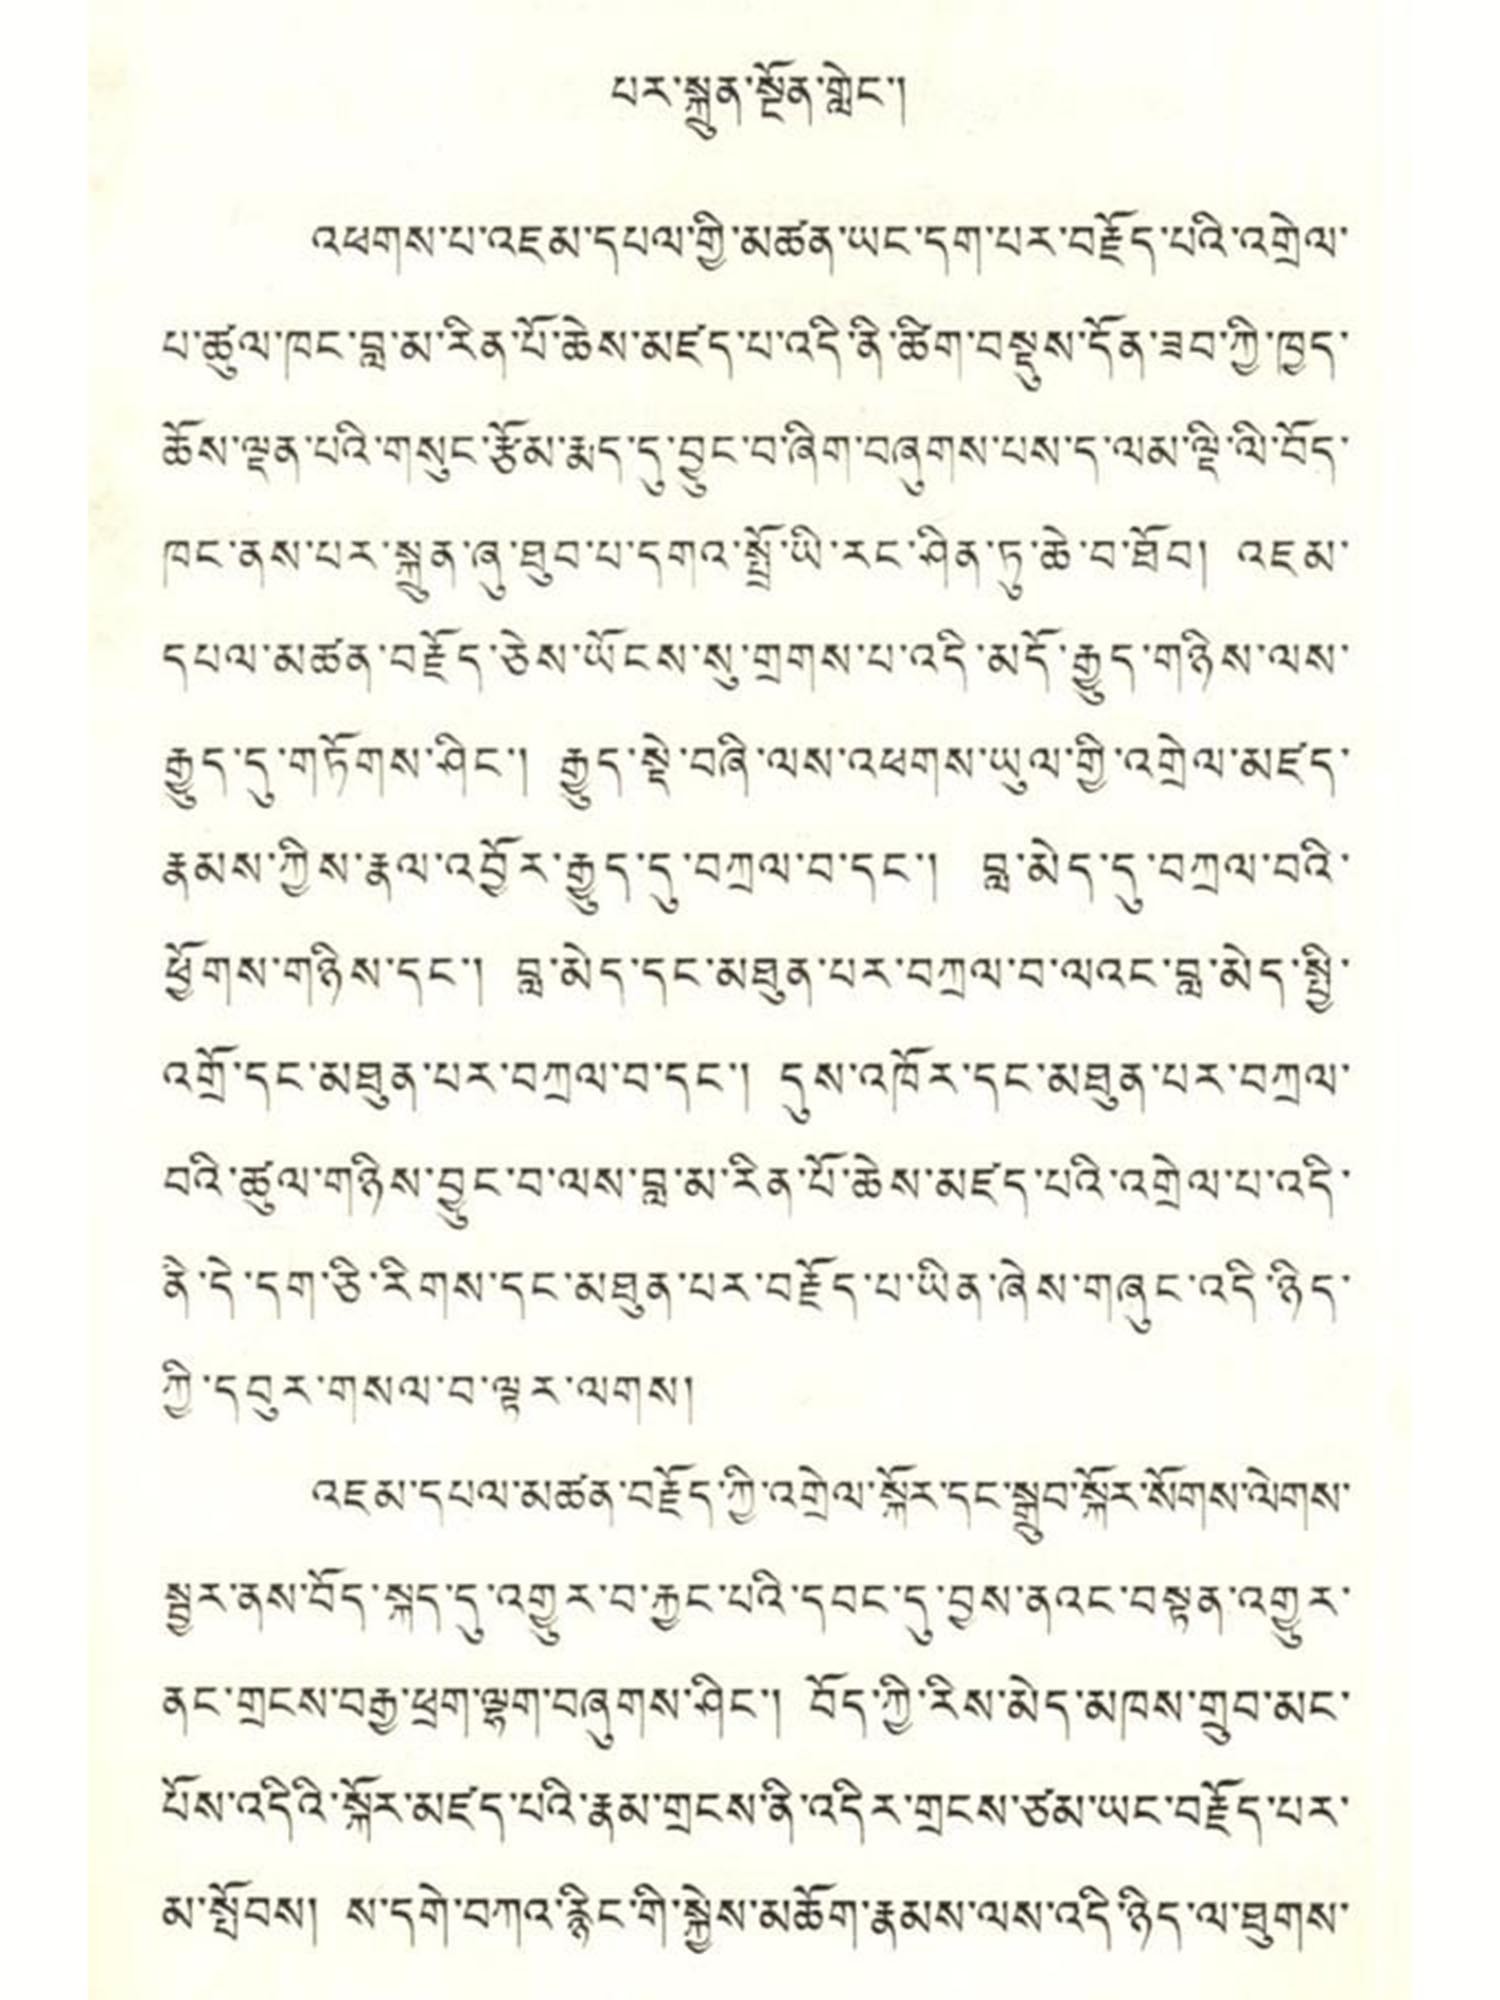 པར་སྐྲུན་སྔོན་གླེང་།
འཕགས་པ་འཇམ་དཔལ་གྱི་མཚན་ཡང་དག་པར་བརྗོད་པའི་འགྲེལ་
པ་ཚུལ་ཁང་བླ་མ་རིན་པོ་ཆེས་མཛད་པ་འདི་ནི་ཚིག་བསྡུས་དོན་ཟབ་ཀྱི་ཁྱད་
ཆོས་ལྡན་པའི་གསུང་རྩོམ་རྨད་དུ་བྱུང་བ་ཞིག་བཞུགས་པས་ད་ལམ་ལྡི་ལི་བོད་
ཁང་ནས་པར་སྐྲུན་ཞུ་ཐུབ་པ་དགའ་སྤྲོ་ཡི་རང་ཤིན་ཏུ་ཆེ་བ་ཐོབ། འཇམ་
དཔལ་མཚན་བརྗོད་ཅེས་ཡོངས་སུ་གྲགས་པ་འདི་མདོ་རྒྱུད་གཉིས་ལས་
རྒྱུད་དུ་གཏོགས་ཤིང་། རྒྱུད་སྡེ་བཞི་ལས་འཕགས་ཡུལ་གྱི་འགྲེལ་མཛད་
རྣམས་ཀྱིས་རྣལ་འབྱོར་རྒྱུད་དུ་བཀྲལ་བ་དང་། བླ་མེད་དུ་བཀྲལ་བའི་
ཕྱོགས་གཉིས་དང་། བླ་མེད་དང་མཐུན་པར་བཀྲལ་བ་ལའང་བླ་མེད་སྤྱི་
འགྲོ་དང་མཐུན་པར་བཀྲལ་བ་དང་། དུས་འཁོར་དང་མཐུན་པར་བཀྲལ་
བའི་ཚུལ་གཉིས་བྱུང་བ་ལས་བླ་མ་རིན་པོ་ཆེས་མཛད་པའི་འགྲེལ་པ་འདི་
ནི་དེ་དག་ཅི་རིགས་དང་མཐུན་པར་བརྗོད་པ་ཡིན་ཞེས་གཞུང་འདི་ཉིད་
ཀྱི་དབུར་གསལ་བ་ལྟར་ལགས།
འཇམ་དཔལ་མཚན་བརྗོད་ཀྱི་འགྲེལ་སྐོར་དང་སྒྲུབ་སྐོར་སོགས་ལེགས་
སྦྱར་ནས་བོད་སྐད་དུ་འགྱུར་བ་རྐྱང་པའི་དབང་དུ་བྱས་ནའང་བསྟན་འགྱུར་
ནང་གྲངས་བརྒྱ་ཕྲག་ལྷག་བཞུགས་ཤིང་། བོད་ཀྱི་རིས་མེད་མཁས་གྲུབ་མང་
པོས་འདིའི་སྐོར་མཛད་པའི་རྣམ་གྲངས་ནི་འདིར་གྲངས་ཙམ་ཡང་བརྗོད་པར་
མ་སྤོབས། ས་དགེ་བཀའ་རྙིང་གི་སྐྱེས་མཆོག་རྣམས་ལས་འདི་ཉིད་ལ་ཐུགས་